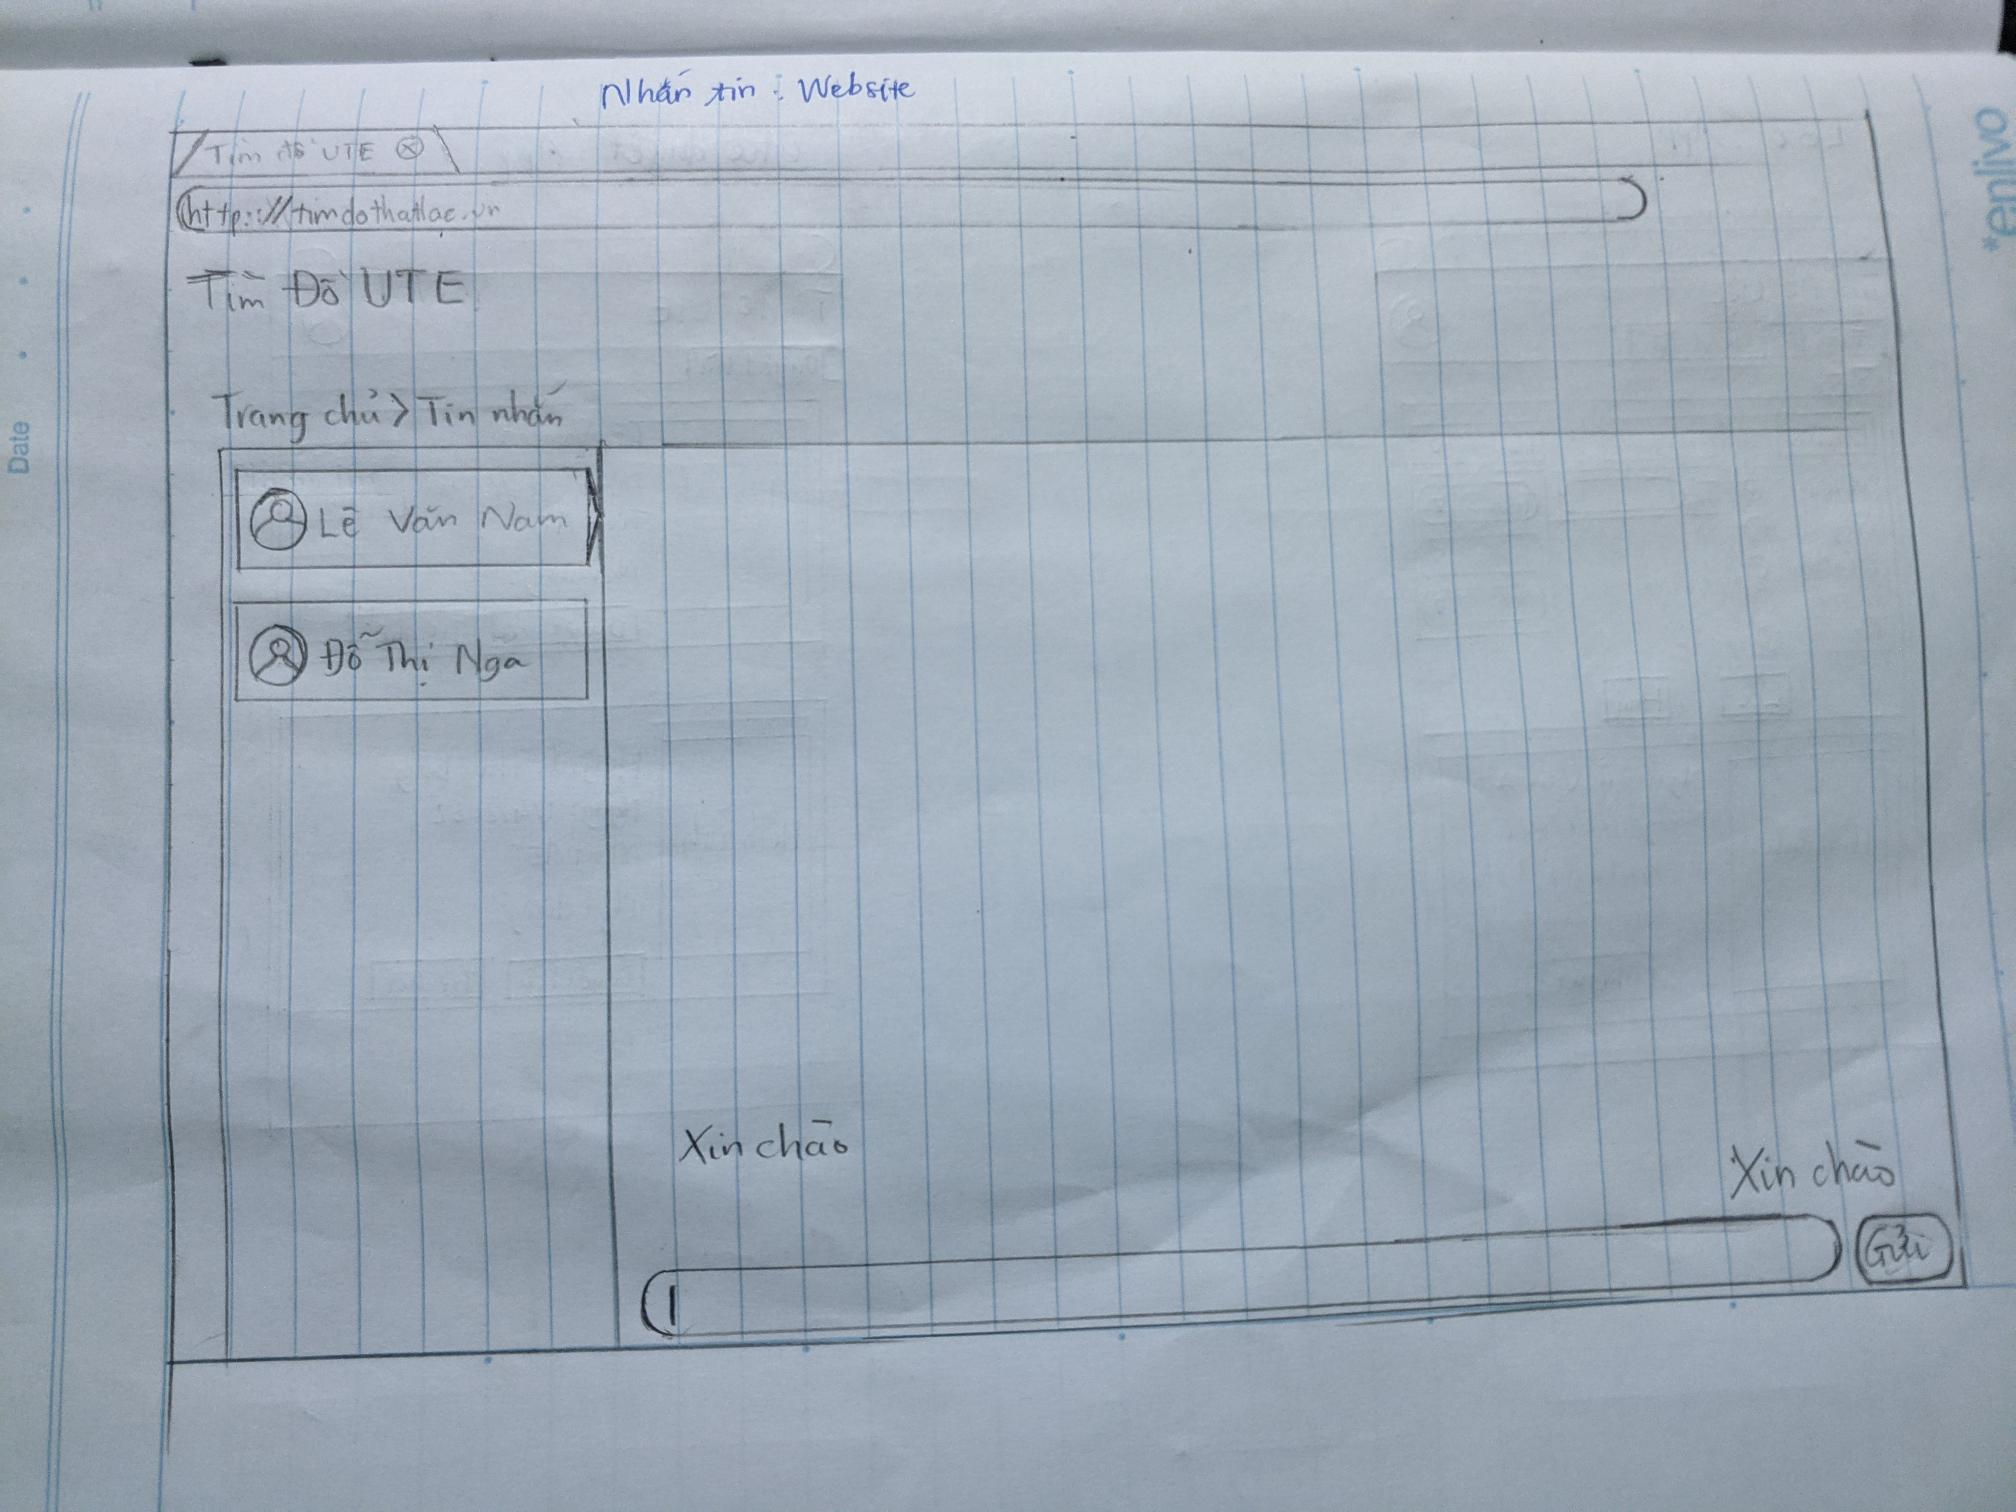 Nhắn tin : Website
Tìm đồ UTE
http://timdothatlac.vn
Tìm Đồ UTE
Trang chủ > Tin nhắn
Lê Văn Nam
Đỗ Thị Nga
Xin chào
Xin chào
Gửi
Date
*enlivo